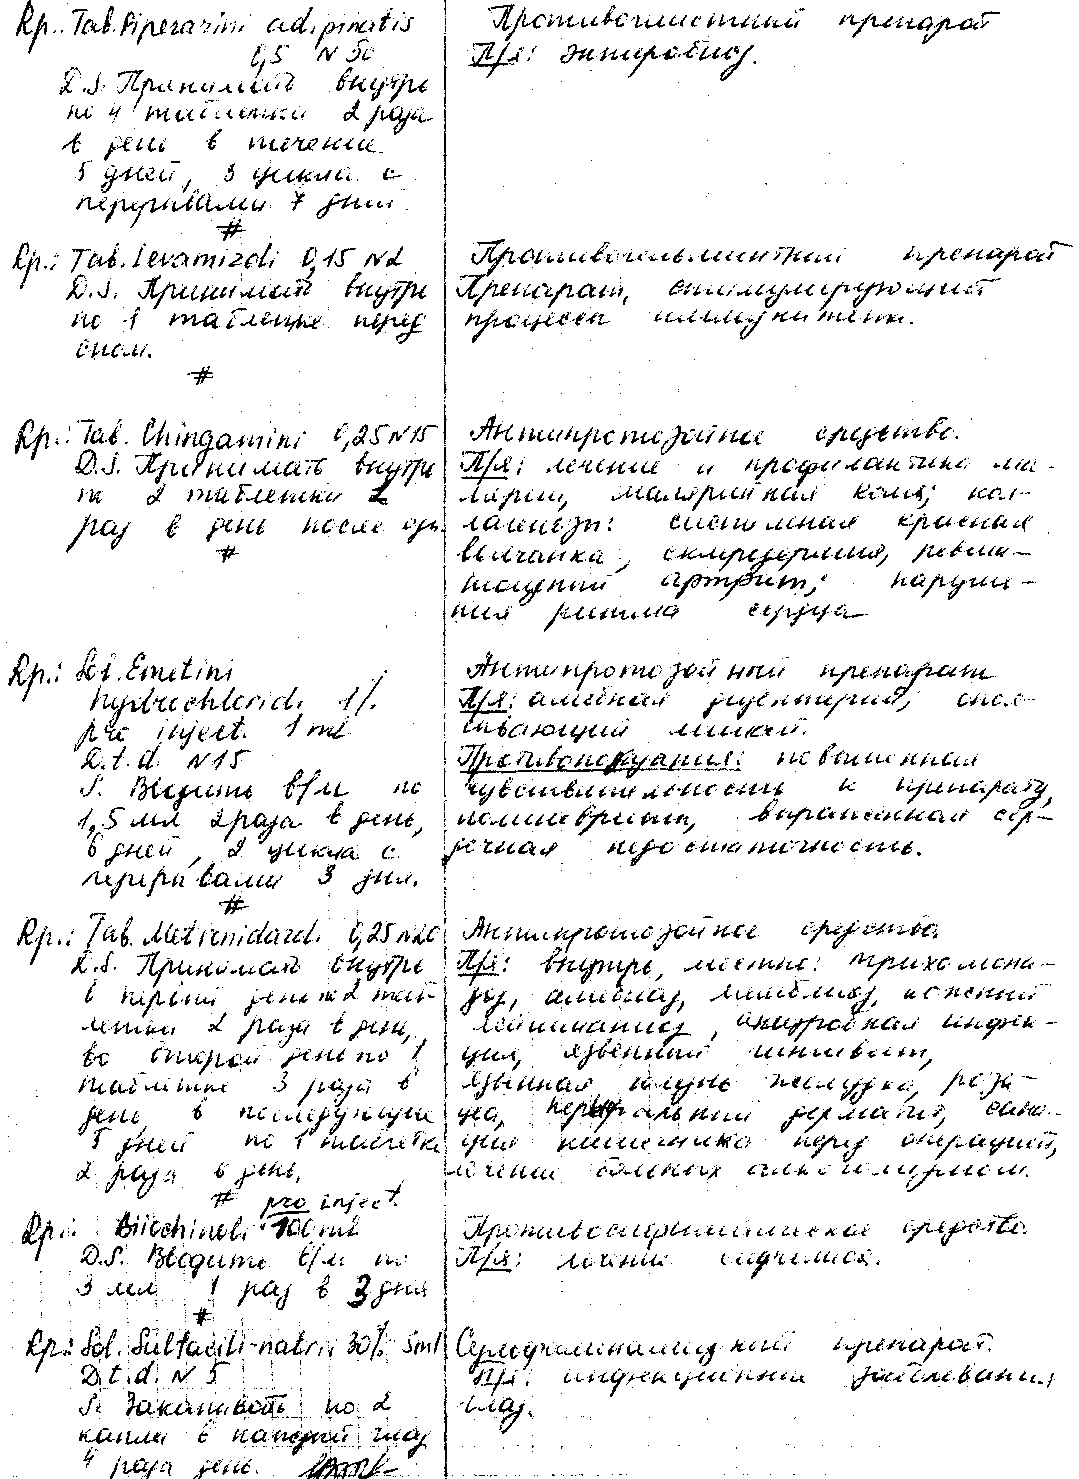 Rp.: Tab. Piperazini adipinatis
0,5 N 50
D.S. Принимать внутрь
по 4 таблетки 2 раза
в день в течение
5 дней, 3 цикла с
перерывами 7 дней
#
Противоглистный препарат
П/я: энтеробиоз.
Rp.: Tab. Levamizoli 0,15 N2
D.S. Принимать внутрь
по 1 таблетке перед
сном.
#
Противогельминтный препарат
Препарат, стимулирующий
процессы иммунитета.
Rp.: Tab. Chingamini 0,25 N15
D.S. Принимать внутрь
по 2 таблетки 2
раз в день после еды.
#
Антипротозойное средство.
П/я: лечение и профилактика ма-
лярии, малярийная кома; кол-
лагенозы: системная красная
волчанка, склеродермия, ревма-
тоидный артрит; наруше-
ния ритма сердца
Rp.: Sol. Emetini
hydrochloridi 1%
pro inject. 1 ml
D.t.d. N15
S. Вводить в/м по
1,5 мл 2 раза в день,
6 дней, 2 цикла с
перерывами 3 дня.
#
Антипротозойный препарат
П/я: амебная дизентерия,
Противопоказания: повышенная
чувствительность к препарату,
полиневрит, выраженная сер-
дечная недостаточность.
Rp.: Tab. Metronidazoli 0,25 N20
D.S. Принимать внутрь
в первый день по 2 таб-
летки 2 раза в день,
во второй день по 1
таблетке 3 раза в
день, в последующие
5 дней по 1 таблетке
2 раза в день.
#
Антипротозойное средство
П/я: внутрь, местно: трихомони-
аз, амебиаз, лямблиоз, кожный
лейшманиоз, анаэробная инфек-
ция, язвенный гингивит,
язвенная болезнь желудка, роза-
цеа, периоральный дерматит, сана-
ция кишечника перед операцией,
лечение больных алкоголизмом.
pro inject.
Rp.: Biiochinoli 100 ml
D.S. Вводить в/м по
3 мл 1 раз в 3 дня
#
Противосифилитическое средство.
П/я: лечение сифилиса.
Rp.: Sol. Sulfacili-natrii 30% 5ml
D.t.d. N 5
S. Закапывать по 2
капли в каждый глаз
4 раза день.
Сульфаниламидный препарат.
П/я: инфекционные заболевания
глаз.